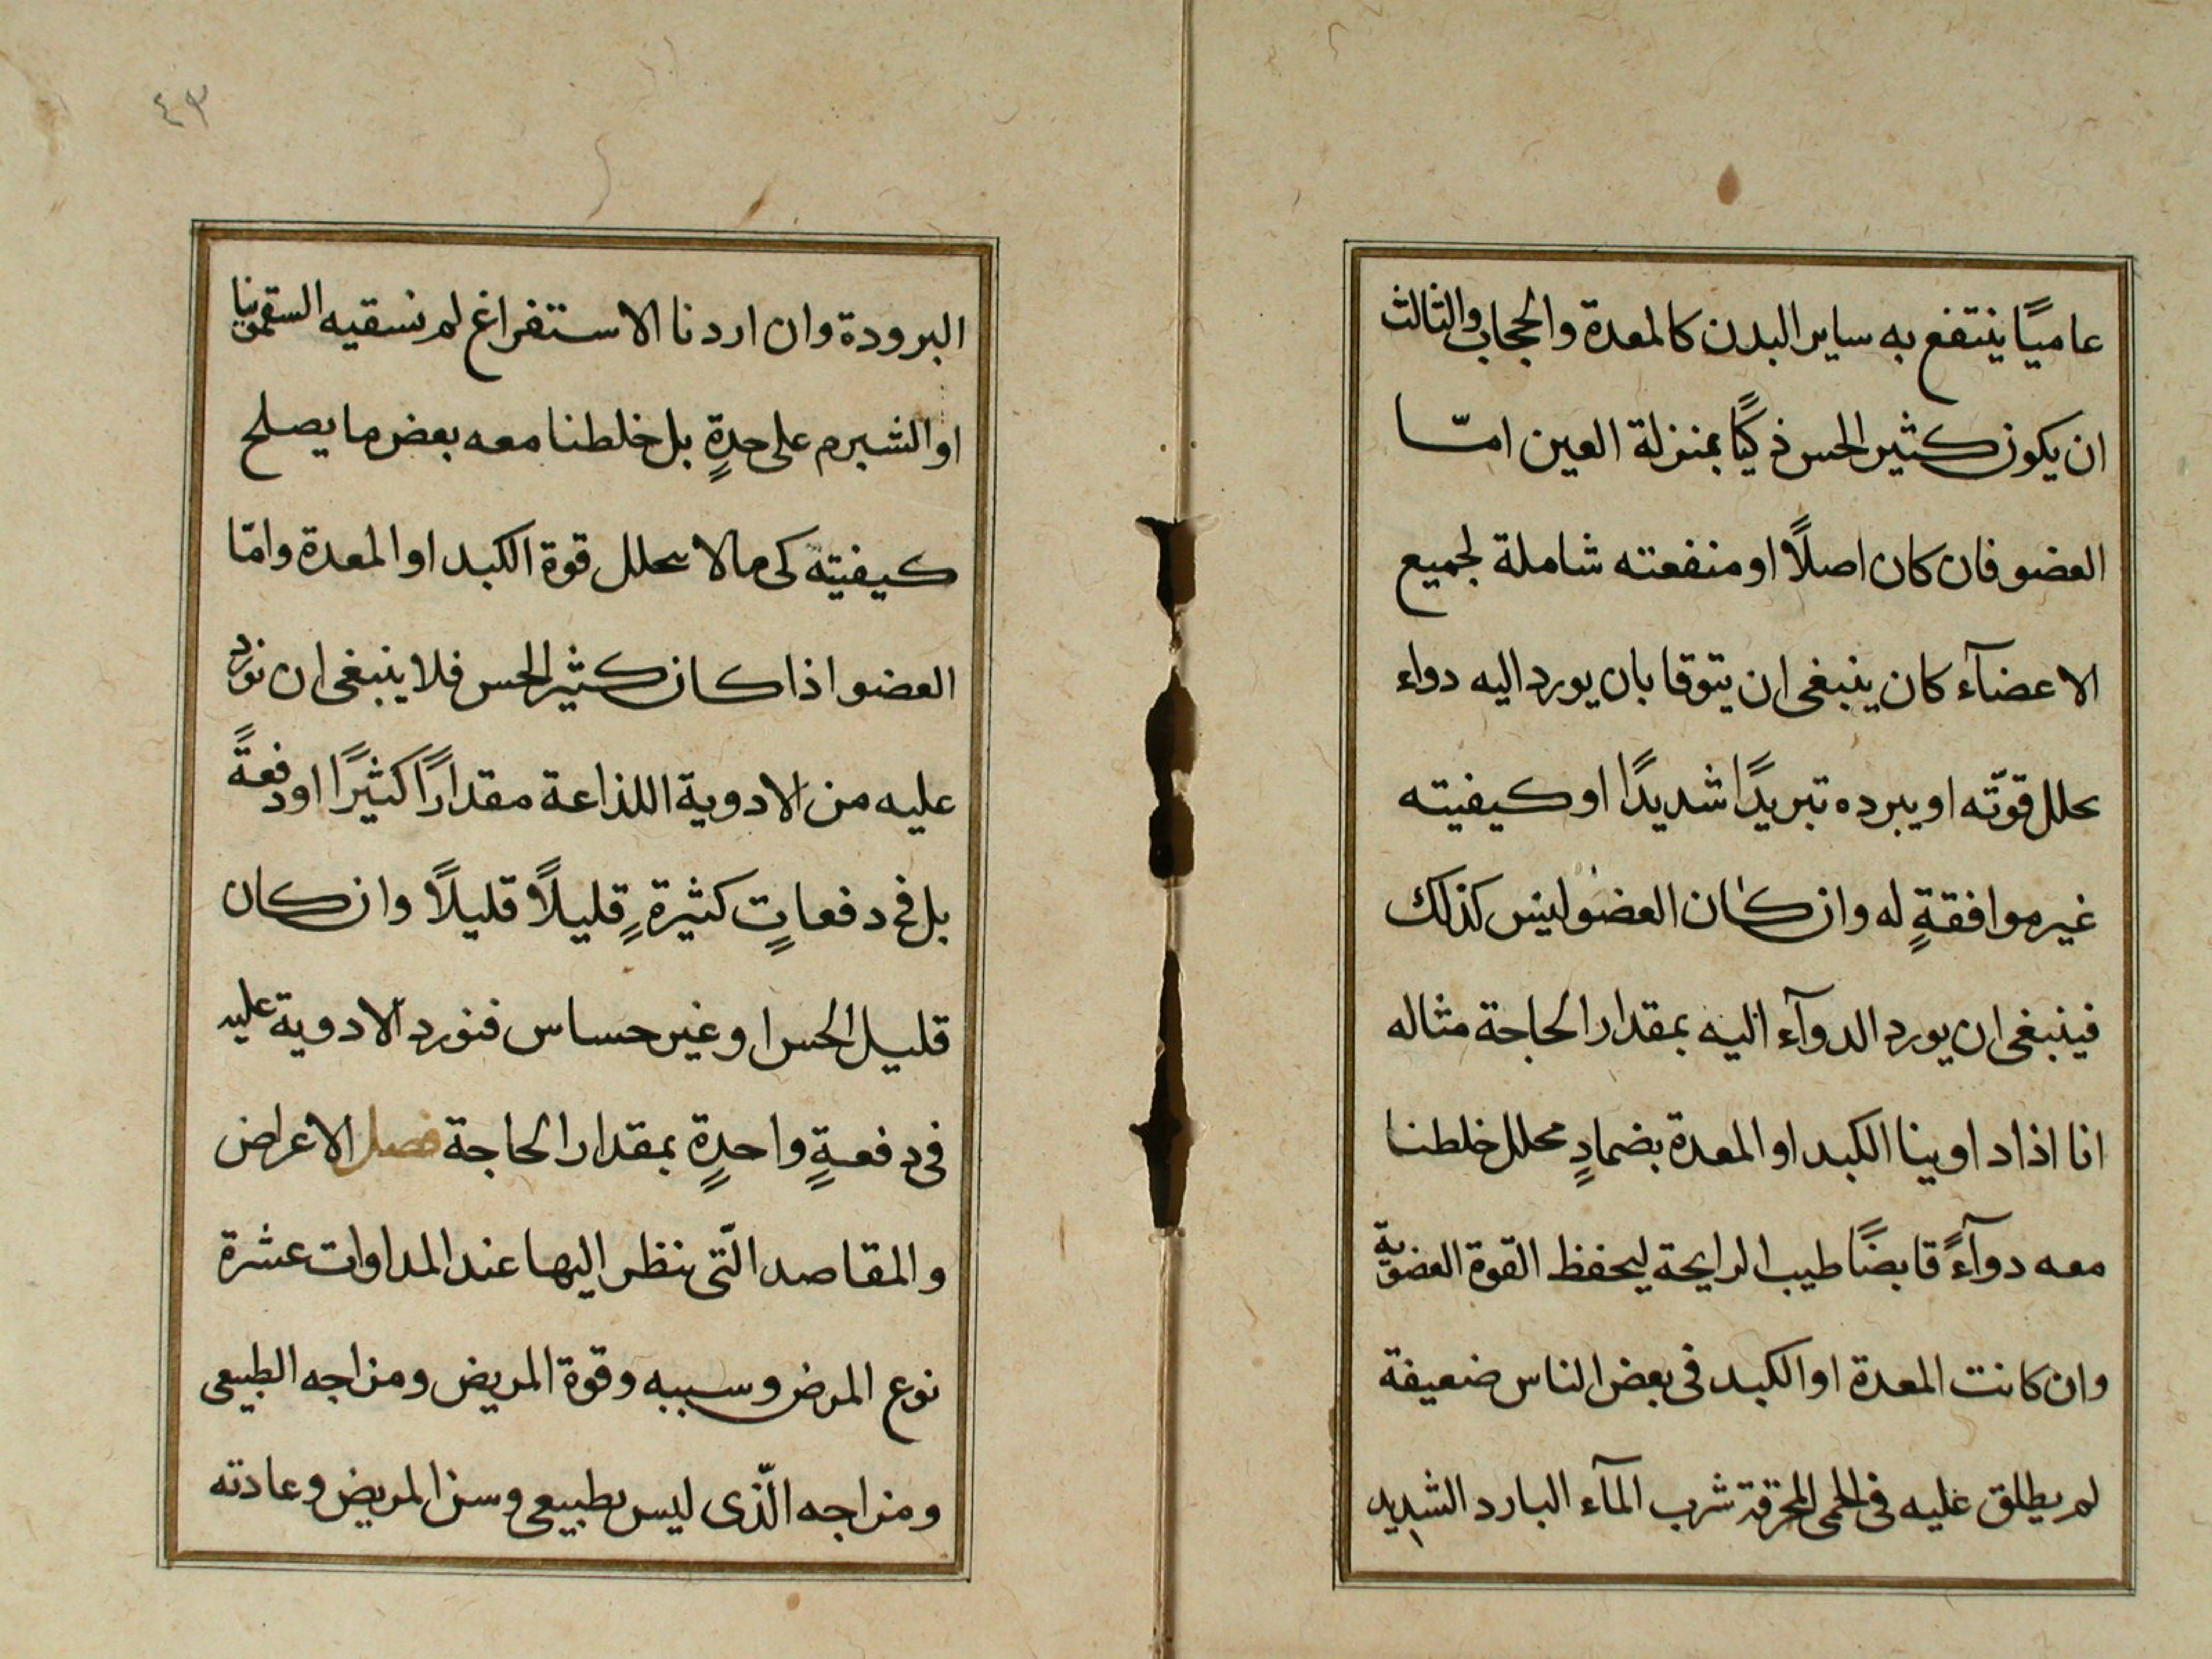 عاميًا ينتفع به ساير البدن كالمعدة والحجاب والثالث
ان يكون كثير الحس ذكيًا بمنزلة العين امّا
العضو فان كان اصلًا او منفعته شاملة لجميع
الاعضآء كان ينبغى ان يتوقا بان يورد اليه دواء
يحلل قوتّه او يبرده تبريدًا شديدًا او كيفيته
غير موافقةٍ له وان كان العضو ليس كذلك
فينبغى ان يورد الدوآء اليه بمقدار الحاجة مثاله
انا اذا داوينا الكبد او المعدة بضمادٍ محلل خلطنا
معه دوآءً قابضًا طيب الرايحة ليحفظ القوة العضوية
وان كانت المعدة او الكبد فى بعض الناس ضعيفة
لم يطلق عليه فى الحمى المحرقة شرب المآء البارد الشديد
٤٣
البرودة وان اردنا الاستفراغ لم نسقيه السقمونيا
او الشبرم على حدةٍ بل خلطنا معه بعض ما يصلح
كيفيته كى مالا يحلل قوة الكبد او المعدة وامّا
العضو اذا كان كثير الحس فلا ينبغى ان نورد
عليه من الادوية اللذاعة مقدارًا كثيرًا او دفعةً
بل فى دفعاتٍ كثيرةٍ قليلًا قليلًا وان كان
قليل الحس او غير حساس فنورد الادوية عليه
فى دفعةٍ واحدةٍ بمقدار الحاجة فصل الاعراض
والمقاصد الّتى ننظر اليها عند المداوات عشرة
نوع المرض وسببه وقوة المريض ومزاجه الطبيعى
ومزاجه الّذى ليس بطبيعى وسن المريض وعادته